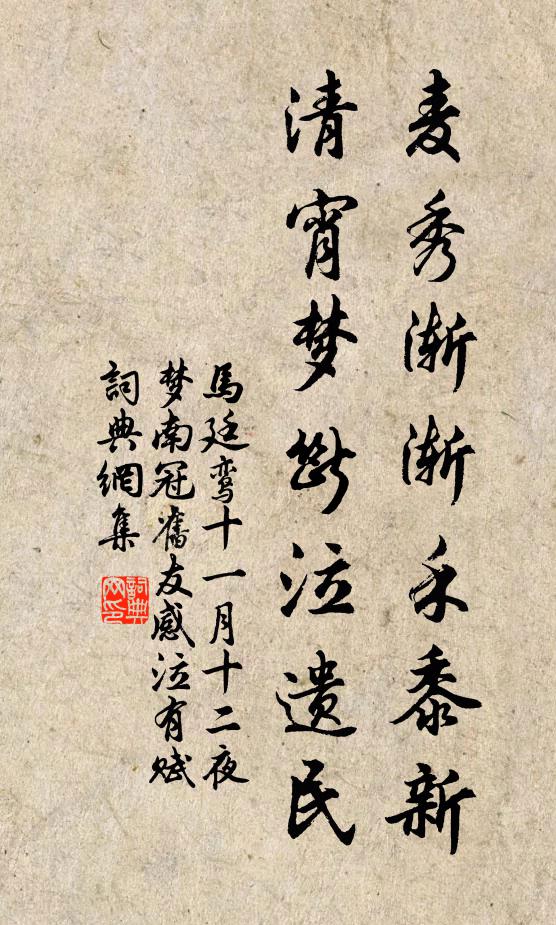 麦秀渐渐禾黍新
清宵梦断泣遗民
馬廷鸾十一月十二夜
梦南冠舊友感泣有赋
詞典網集
詞典网印